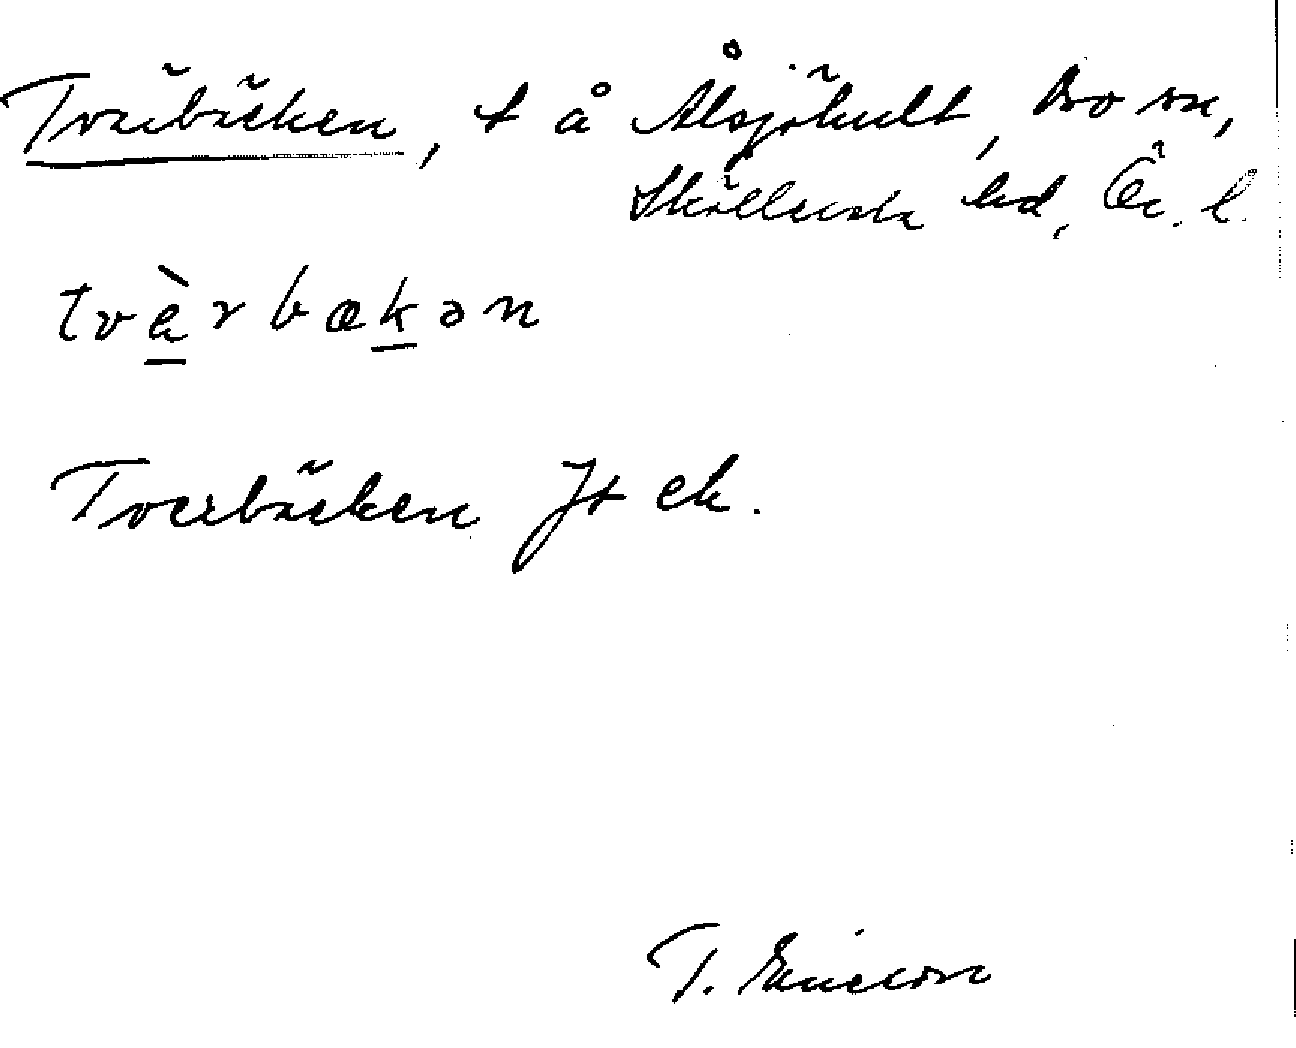 Tvärbäcken, t å Ålsjökult, Bo sn,
Sköllersta hd, Ör. l.
tvàrbækən
Tverbäcken Jt ek.
T. Ericson